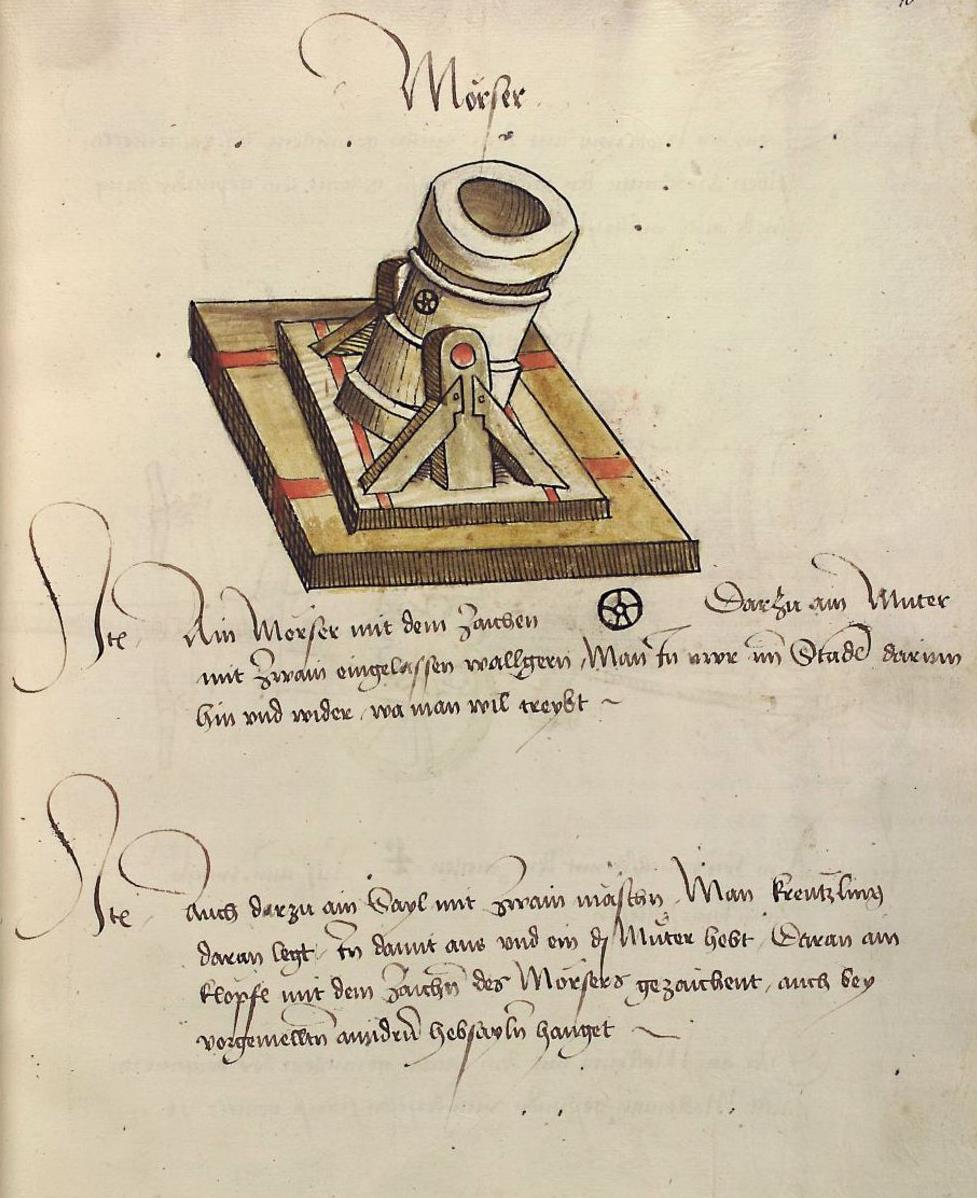 Mörser
Ite Ain Mörser mit dem Zaichen Darzu ain Muter
mit Zwain eingelassen wallgern, Man in vor im Stadel darinn
hin vnd wider, wa man wil treybt ~
Ite auch darzu ain Sayl mit Zwain máschn, Man kreutzling
daran legt, damit aus vnd ein dj Muter hebt, Daran ain
klöpfl mit dem Zaichn des Mörsers gezaichent, auch bey
vorgemelltn anndrn hebsayln hanget ~